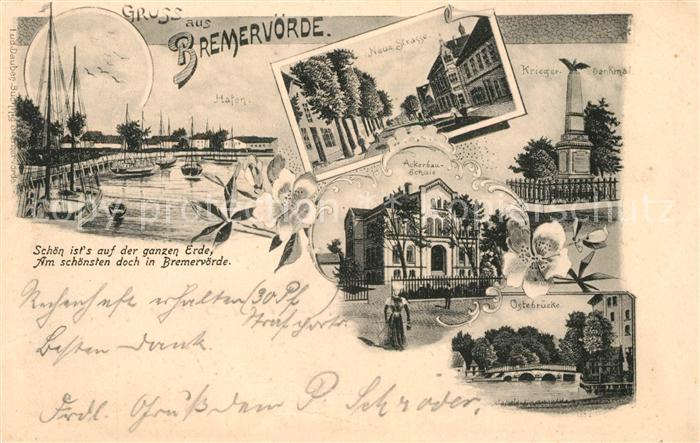 GRUSS aus
BREMERVÖRDE.
Hafen.
Neue Strasse.
Krieger-Denkmal.
Ackerbau-
Schule
Ostebrücke.
Schön ist's auf der ganzen Erde,
Am schönsten doch in Bremervörde.
Rechenheft erhalten 30 Pf
Strafporto.
Besten Dank.
Frdl. Gruß dem P. Schröder.